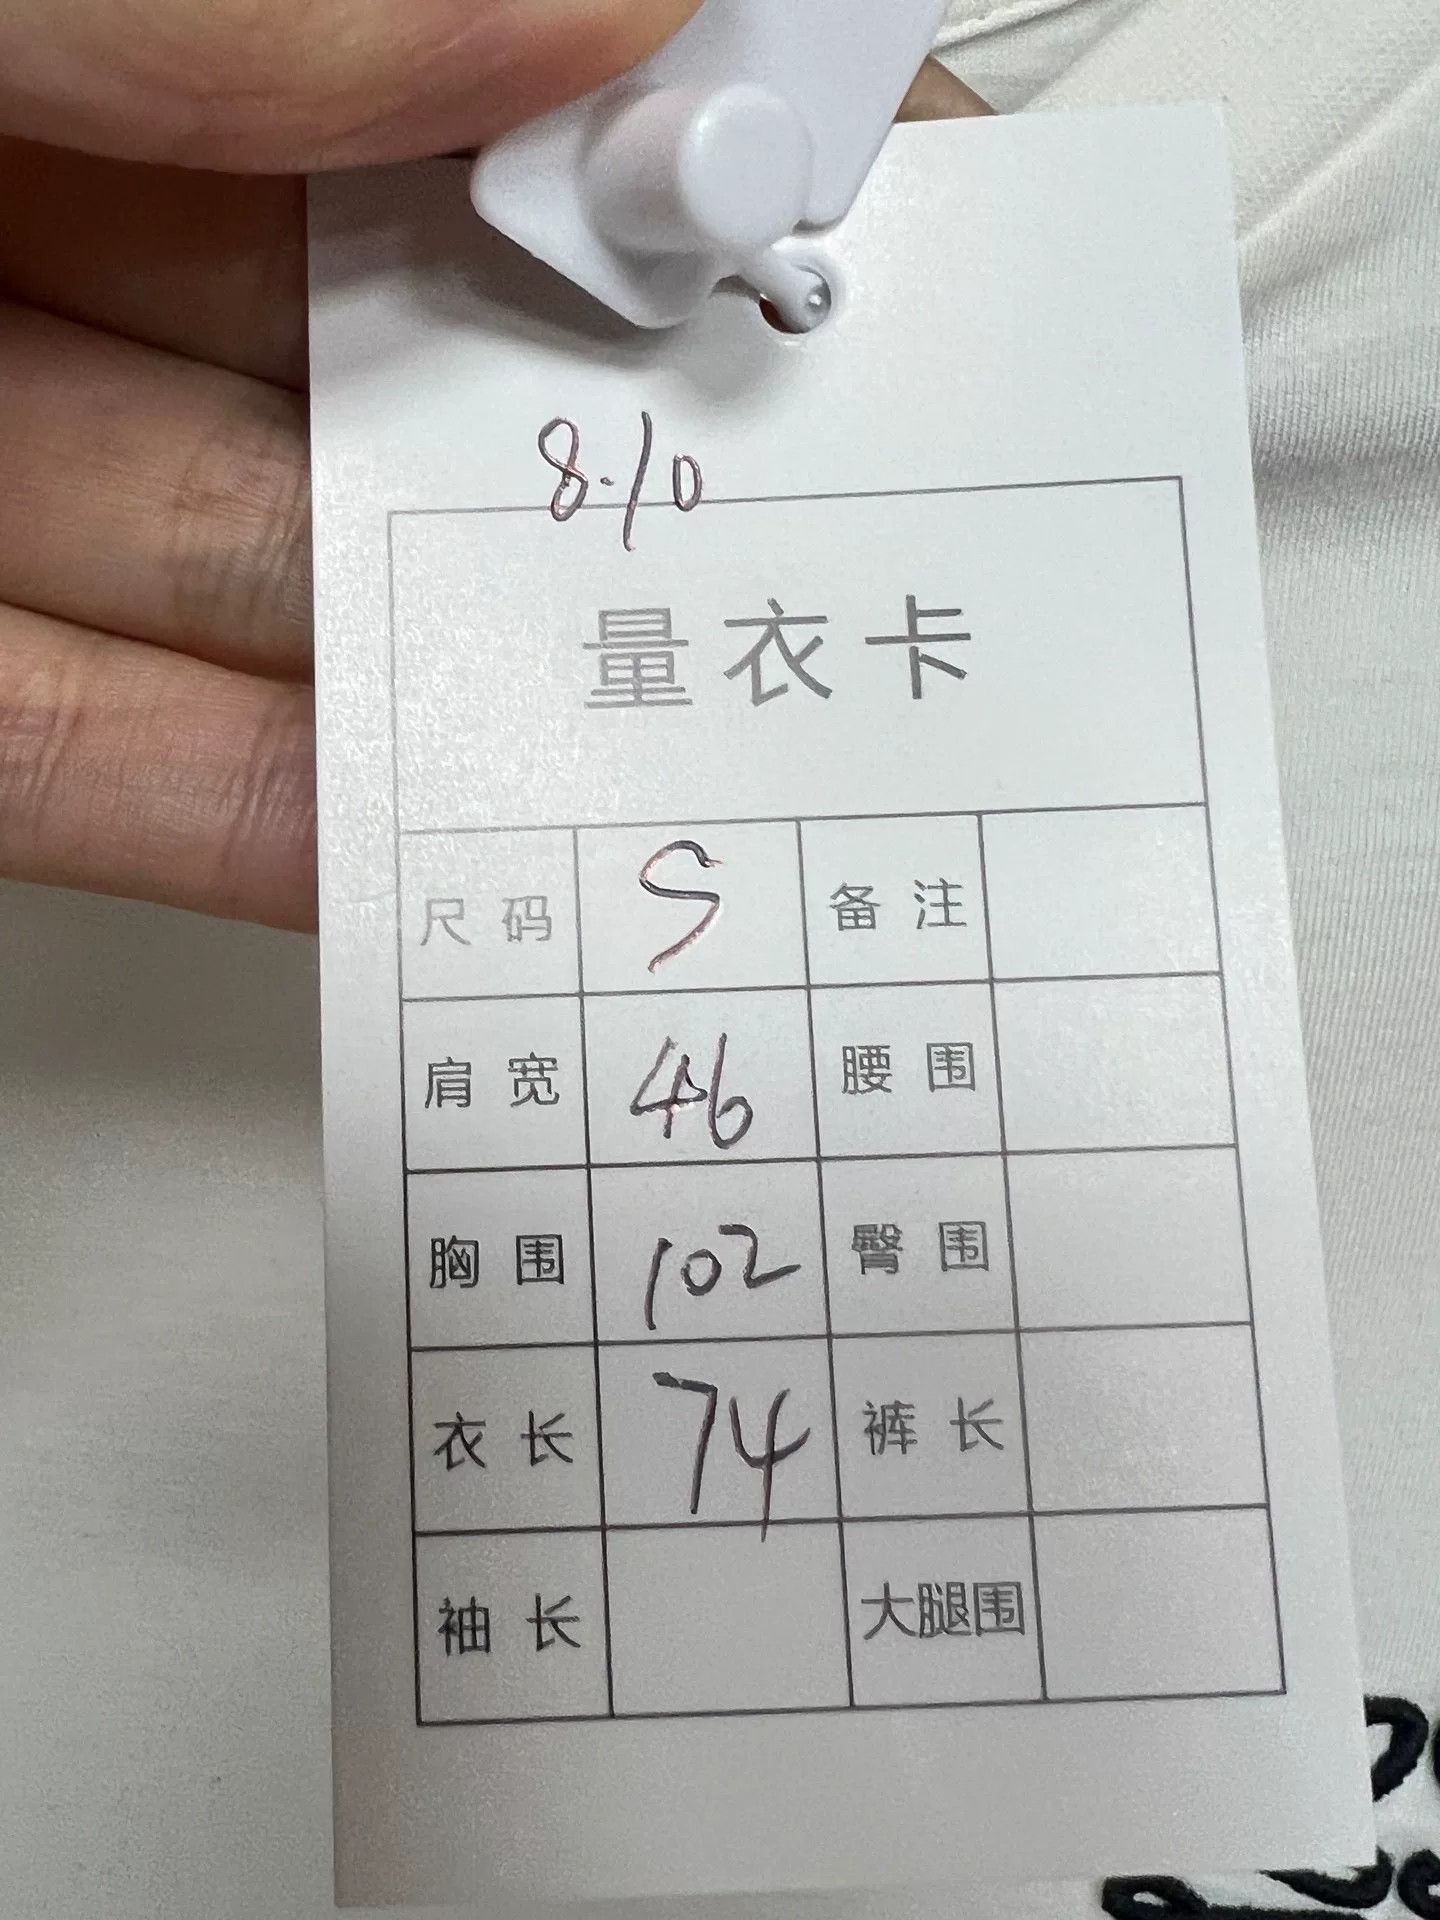 8.10
量衣卡
尺码 S 备注
肩宽 46 腰围
胸围 102 臀围
衣长 74 裤长
袖长 大腿围